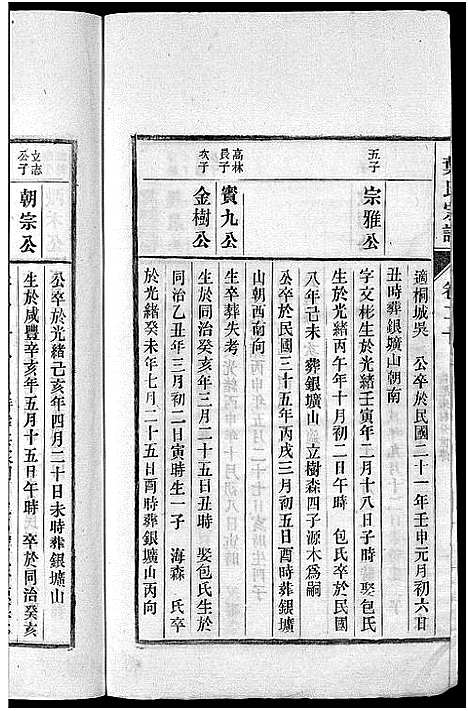 氏宗譜
適桐城吳　公卒於民國二十一年壬申元月初六日
丑時葬銀壙山朝南
五子
宗雅公
字文彬生於光緒壬寅年二月十八日子時　娶包氏
生於光緒丙午年十月初二日午時　包氏卒於民國
八年己未　葬銀壙山　立樹森四子源木為嗣
公卒於民國三十五年丙戌三月初五日酉時葬銀壙
山朝西南向
高林長子
賓九公
生卒葬失考
次子
金樹公
生於同治癸亥年三月二十五日丑時　娶包氏生於
同治乙丑年三月初二日寅時生一子　海森　氏卒
於光緒癸未年七月二十五日酉時葬銀壙山丙向
公卒於光緒己亥年四月二十日未時葬銀壙山
立志公子
朝宗公
生於咸豐辛亥年五月十五日午時　卒於同治癸亥